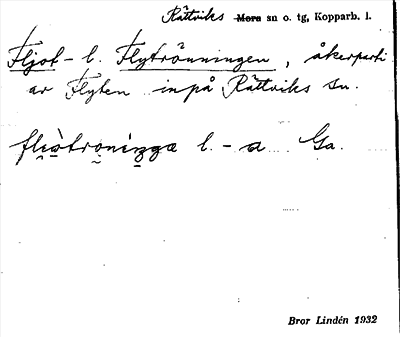 Rättviks Mora sn o. tg, Kopparb. l.
Fljot- l. Flytrönningen, åkerparti
av Flyten inpå Rättviks sn.
l. - a Ga.
Bror Lindén 1932